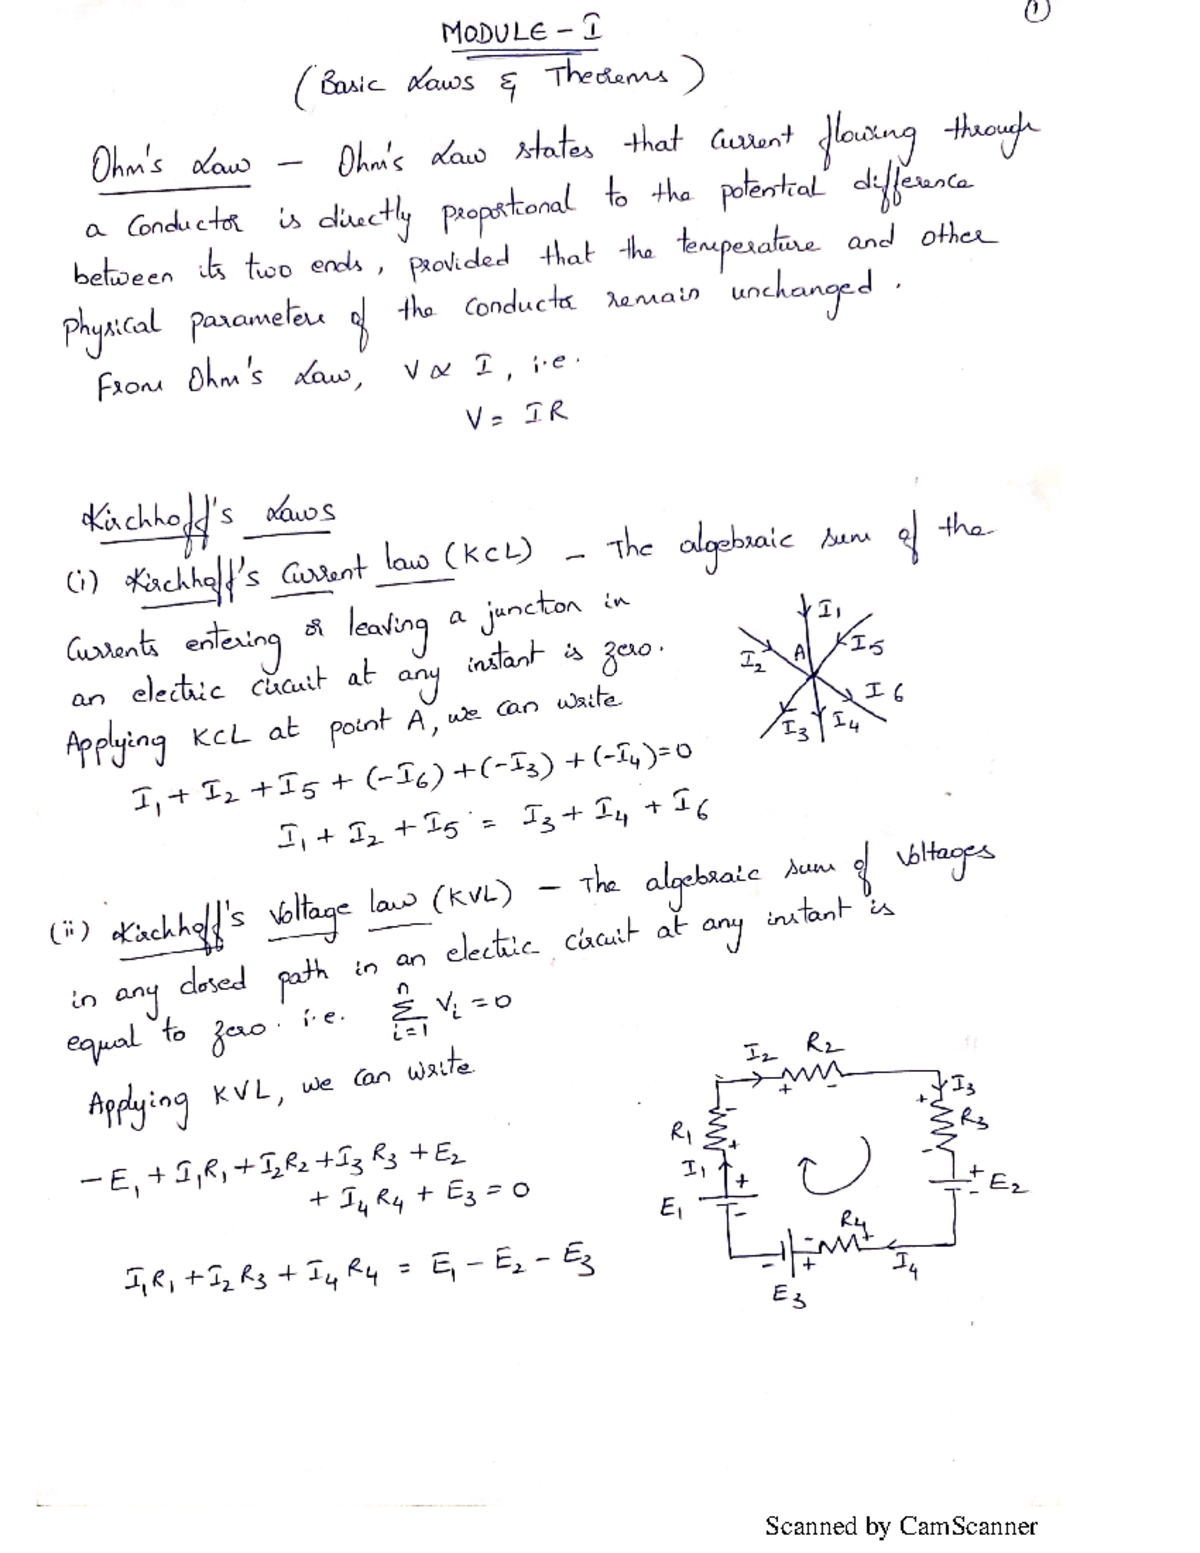 ①
MODULE - I
(Basic Laws & Theorems)
Ohm's Law — Ohm's Law states that Current flowing through
a Conductor is directly proportional to the potential difference
between its two ends, provided that the temperature and other
physical parameters of the conductor remain unchanged.
From Ohm's Law, V ∝ I, i.e.
V = IR
Kirchhoff's Laws
(i) Kirchhoff's Current law (KCL) - The algebraic sum of the
Currents entering or leaving a junction in
an electric circuit at any instant is zero.
Applying KCL at point A, we can write
I₁ + I₂ + I₅ + (-I₆) + (-I₃) + (-I₄) = 0
I₁ + I₂ + I₅ = I₃ + I₄ + I₆
I₁
I₂ A I5
I 6
I₃ I₄
(ii) Kirchhoff's Voltage law (KVL) - The algebraic sum of Voltages
in any closed path in an electric circuit at any instant is
equal to zero. i.e. n Σ i=1 Vᵢ = 0
Applying KVL, we can write
- E₁ + I₁R₁ + I₂R₂ + I₃R₃ + E₂
+ I₄R₄ + E₃ = 0
I₁R₁ + I₂R₃ + I₄R₄ = E₁ - E₂ - E₃
I₂ R₂
+ -
I₃
R₁ - + R₃
+ -
I₁ + + E₂
E₁ - -
R₄
- +
- + I₄
E₃
Scanned by CamScanner